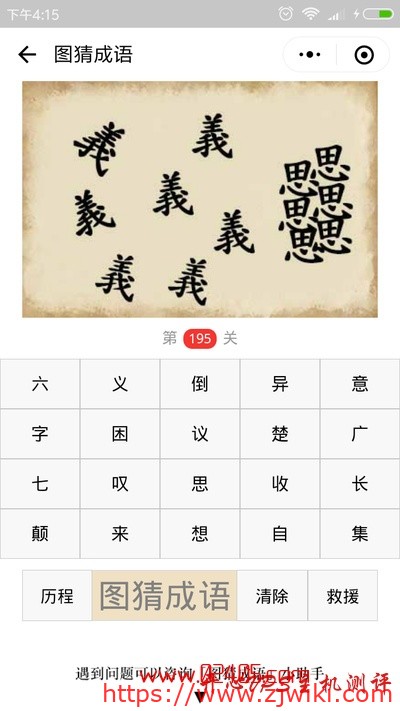 下午4:15
图猜成语
義 義 思思
義 思思
義 義 思思
義 義
第 195 关
六 义 倒 异 意
字 困 议 楚 广
七 叹 思 收 长
颠 来 想 自 集
历程 图猜成语 清除 救援
遇到问题可以咨询
小助手
主机测评
https://www.zjwiki.com